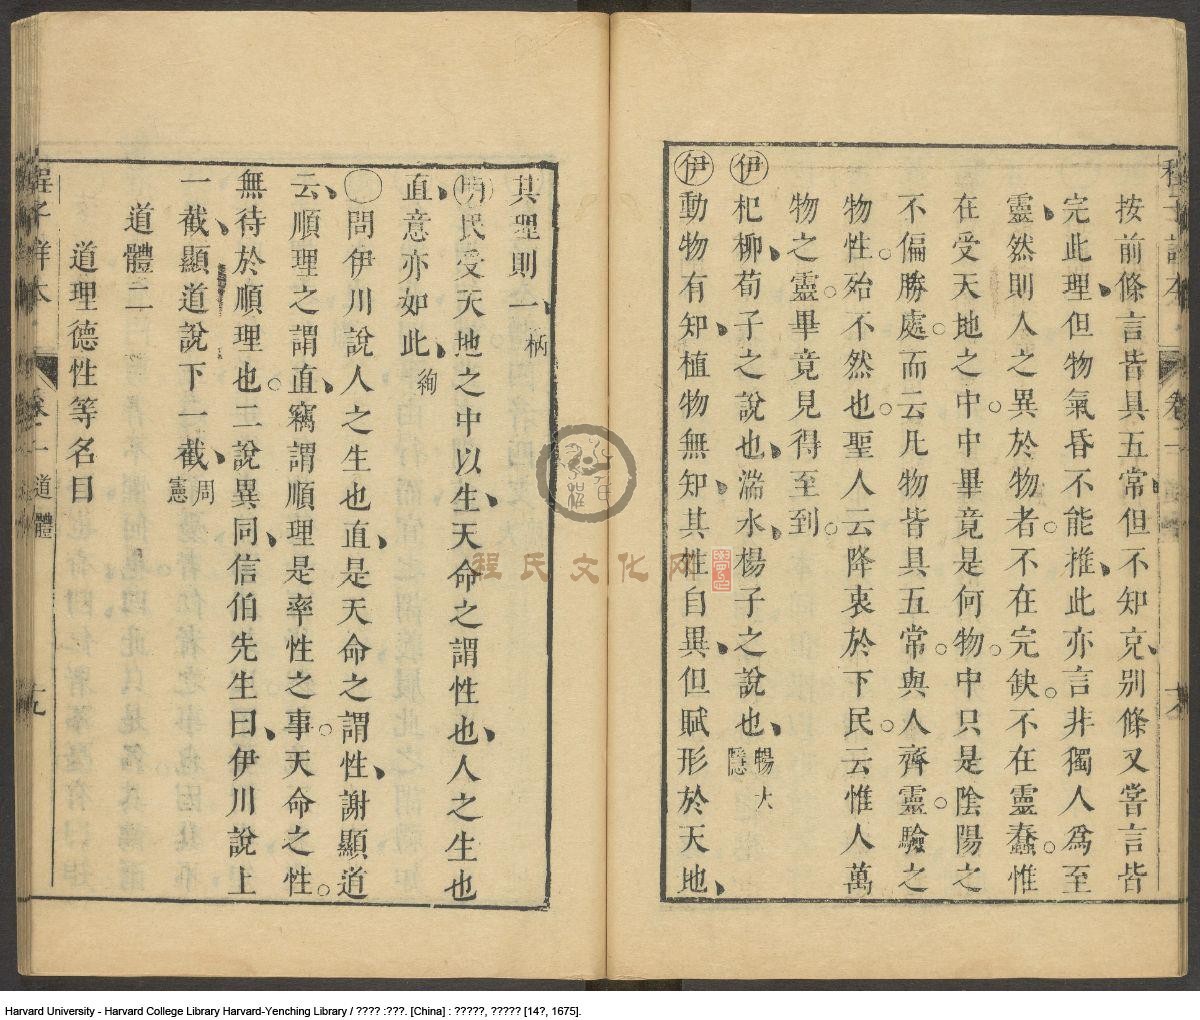 按前條言皆具五常但不知充别條又嘗言皆
完此理但物氣昏不能推此亦言非獨人爲至
靈然則人之異於物者不在完缺不在靈蠢惟
在受天地之中中畢竟是何物中只是陰陽之
不偏勝處而云凡物皆具五常與人齊靈驗之
物性殆不然也聖人云降衷於下民云惟人萬
物之靈畢竟見得至到
伊杞柳荀子之說也湍水楊子之說也暢大隱
伊動物有知植物無知其性自異但賦形於天地
其理則一柄
明民受天地之中以生天命之謂性也人之生也
直意亦如此絢
問伊川說人之生也直是天命之謂性謝顯道
云順理之謂直竊謂順理是率性之事天命之性
無待於順理也二說異同信伯先生曰伊川說上
一截顯道說下一截周憲
道體二
道理德性等名目
程子詳本
卷一
道體
十九
程氏文化网
Harvard University - Harvard College Library Harvard-Yenching Library / ???? :???. [China] : ?????, ????? [14?, 1675].